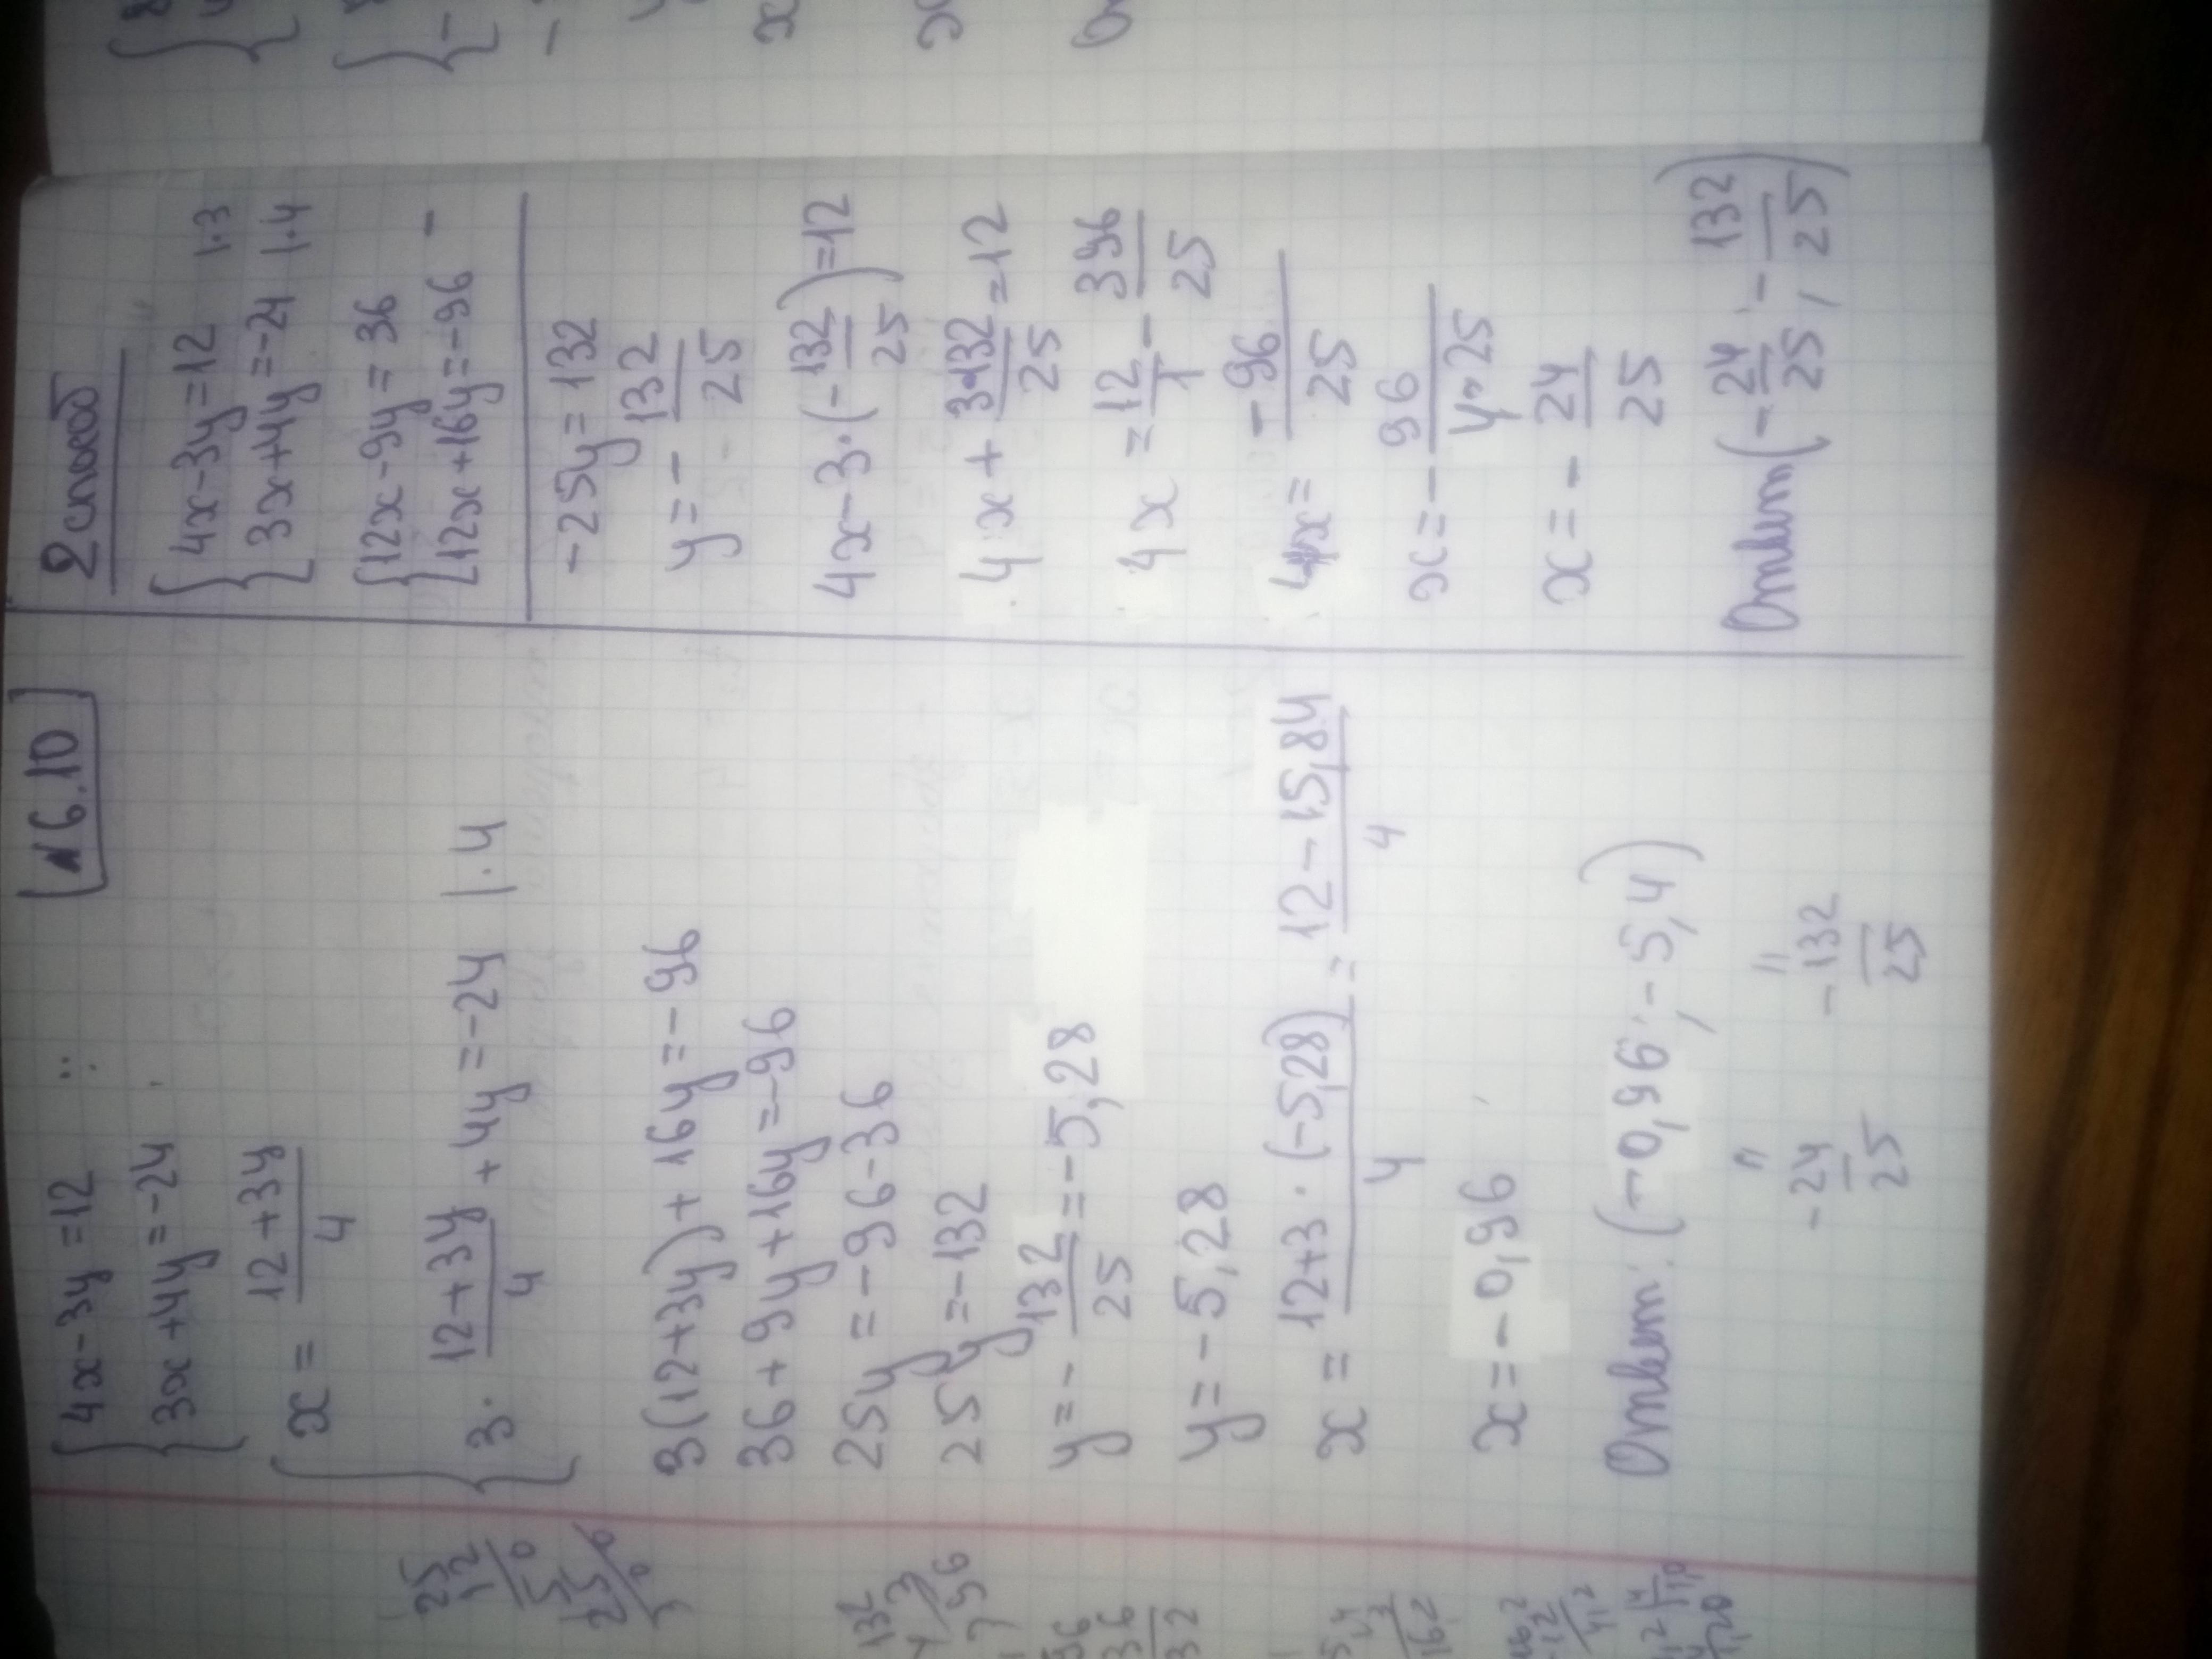 №6.10
{4x-3y=12
{3x+4y=-24
{x = (12+3y)/4
{3·(12+3y)/4 + 4y = -24 |·4
3(12+3y)+16y=-96
36+9y+16y=-96
25y=-96-36
25y=-132
y=-132/25=-5,28
y=-5,28
x = (12+3·(-5,28))/4 = (12-15,84)/4
x=-0,96
Ответ: (-0,96; -5,4)
" "
-24/25 -132/25
2 способ
{4x-3y=12 |·3
{3x+4y=-24 |·4
{12x-9y=36
{12x+16y=-96 -
-25y=132
y=-132/25
4x-3·(-132/25)=12
4x+3·132/25=12
4x=12/1-396/25
4x=-96/25
x=-96/4·25
x=-24/25
Ответ(-24/25; -132/25)